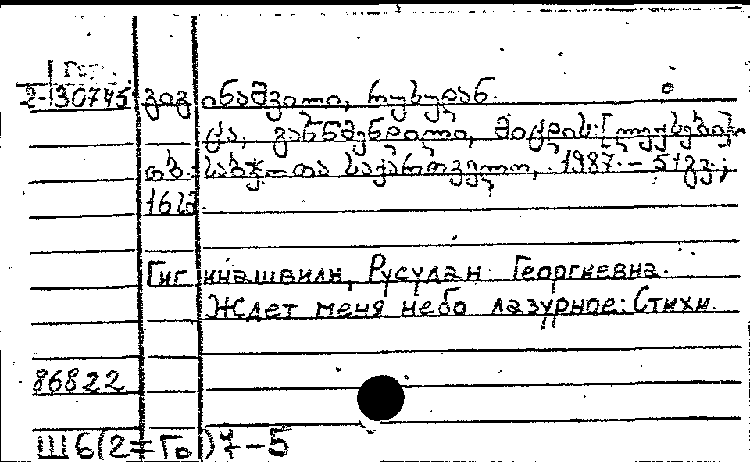 2-30745 გიგინაშვილი, რუსუდან.
ცა, განწმენდილი, მოქდის: [ლექსები].
თბ.: საბჭოთა საქართველო, 1987. - 51 გვ.;
16 სმ
Гигинашвили, Русудан Георгиевна.
Ждет меня небо лазурное: Стихи.
86822
Ш6(2=Гр)7-5